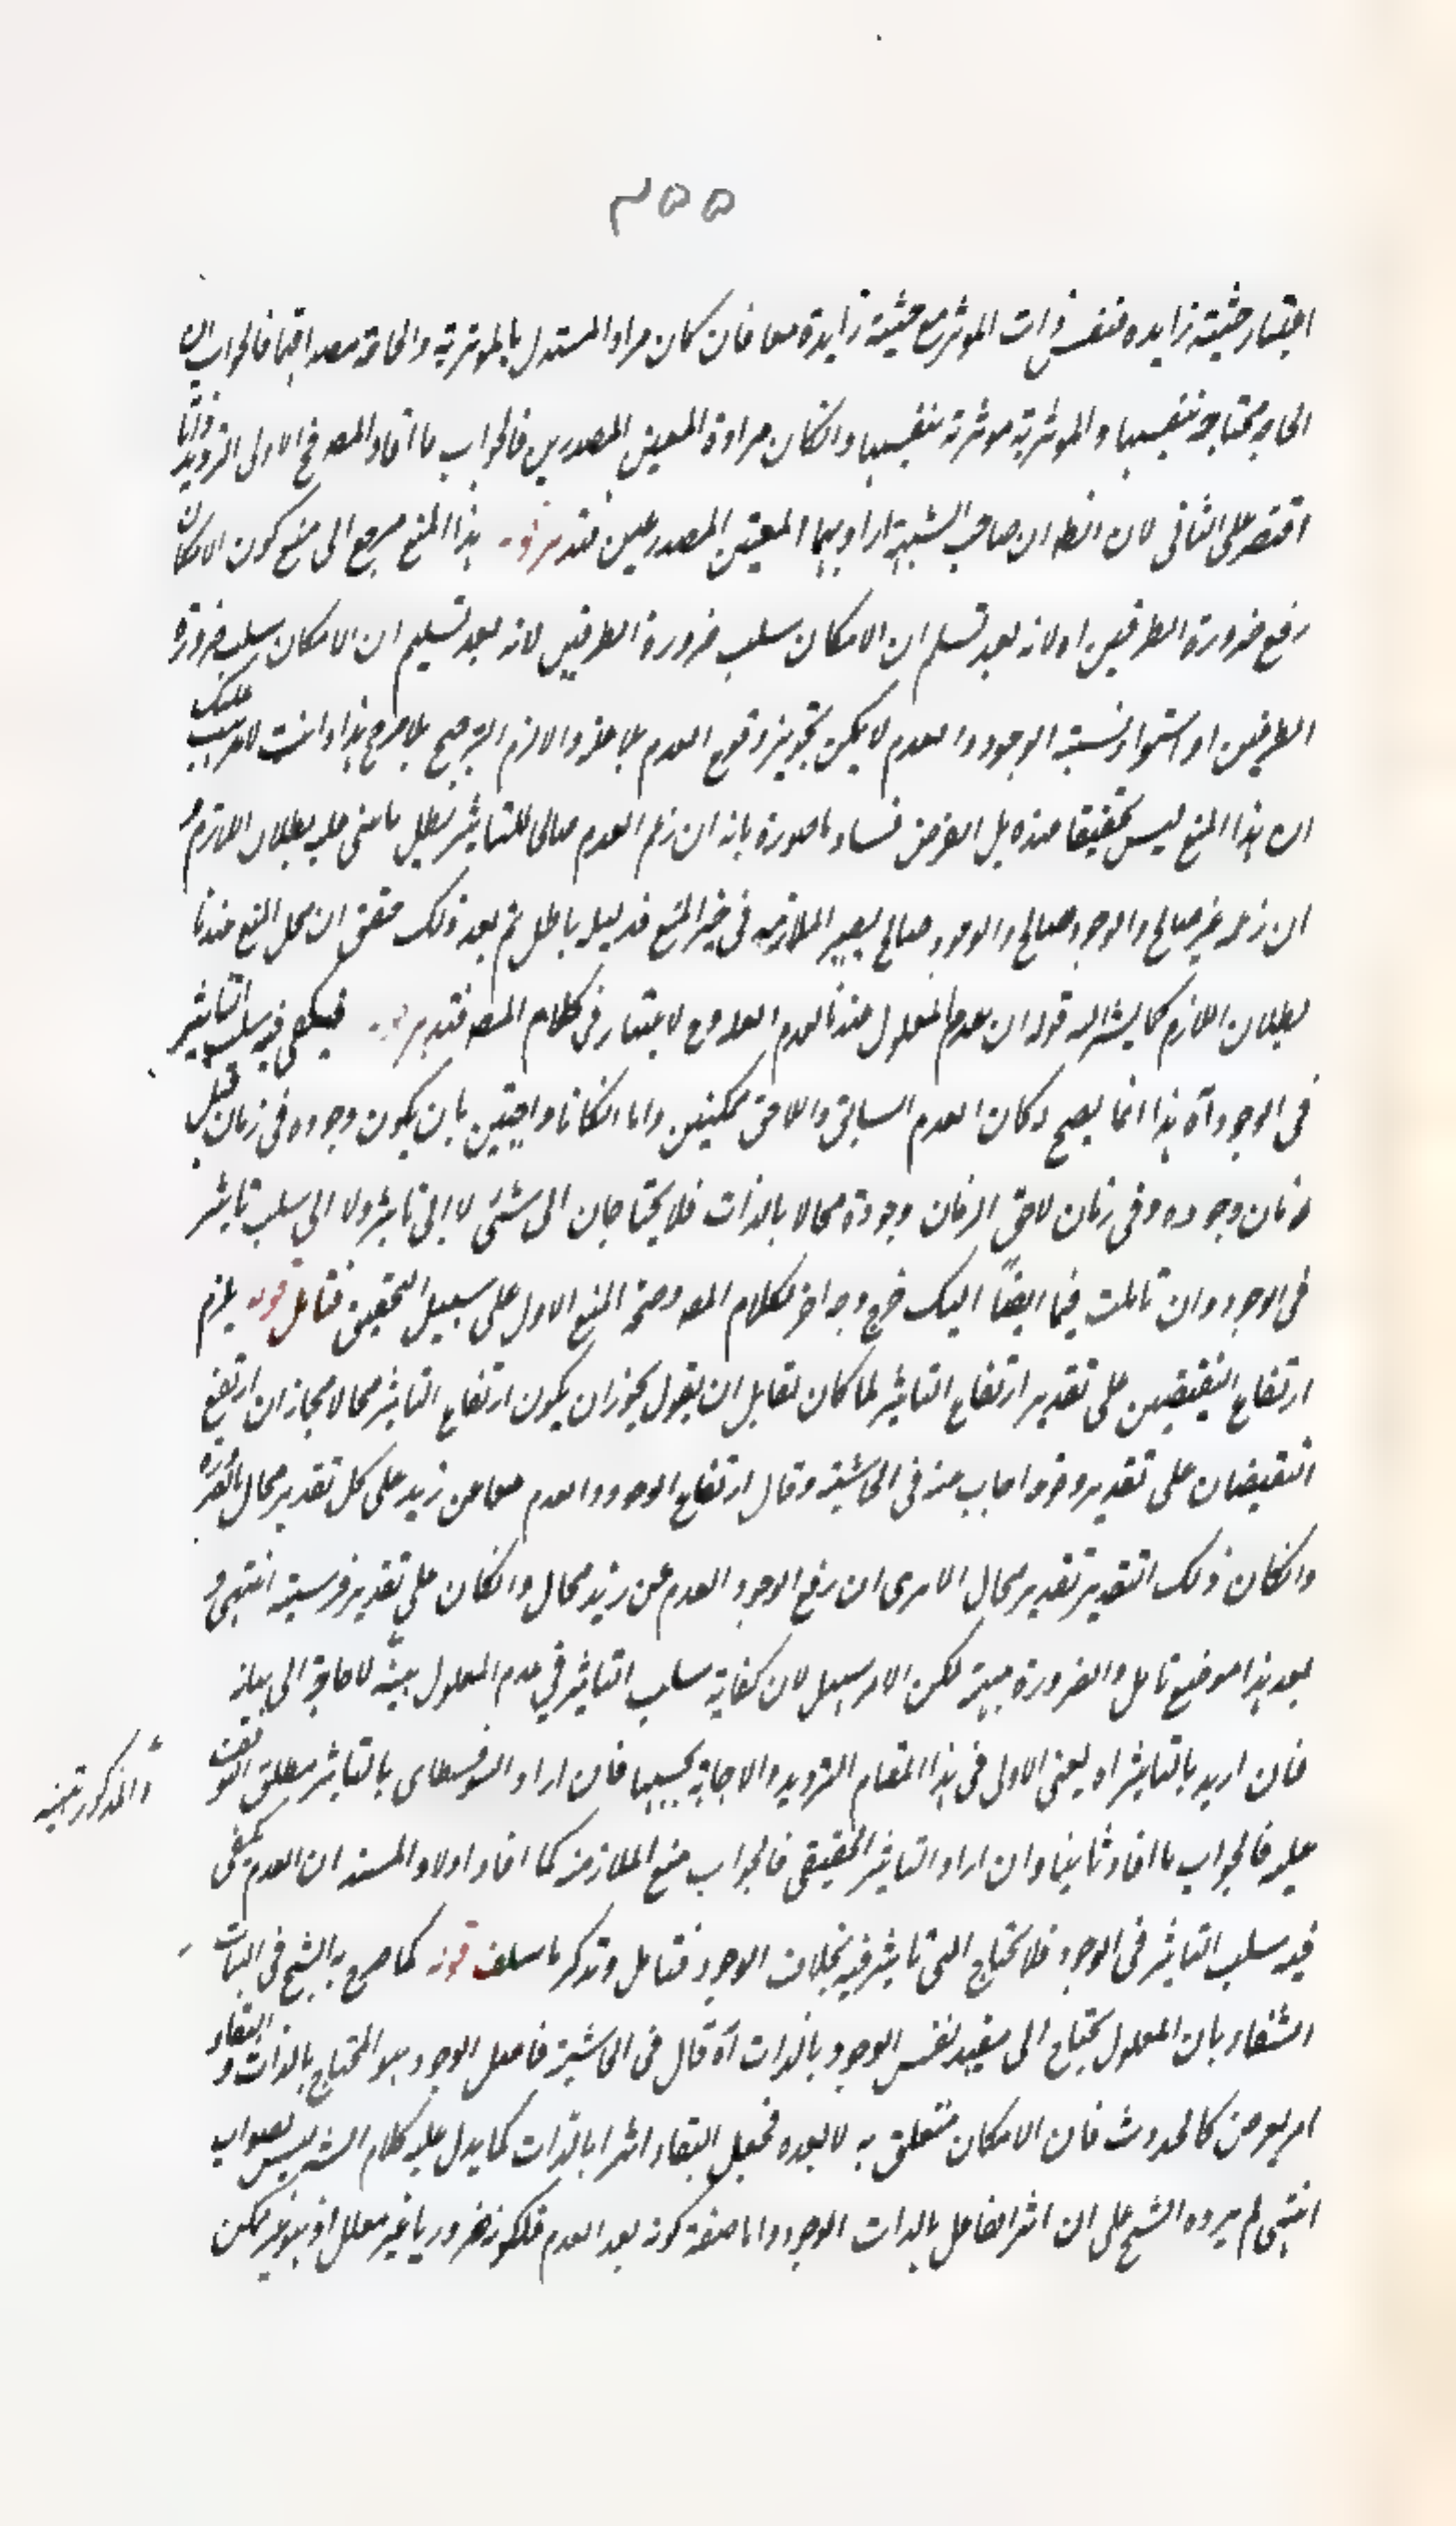 ٣٥٥
اعتبار حيثية زايده فنفس ذات الموثر مع حيثية زايدة معا فان كان مراد المستدل بالموثرية والحاجة مصداقها فالجواب ان
الحاجة محتاجة بنفسها والموثرية موثرة بنفسها وانكان مراده المعنيين المصدريين فالجواب ما افاد المصه في الاول الترديد وانما
اقتصر على الثاني لان الظ ان صاحب الشبهة اراد بهما المعنيين المصدريين فتدبر قوله هذا المنع يرجع الى منع كون الامكان
رفع ضرورة الطرفين اه لانه بعد تسلم ان الامكان سلب ضرورة الطرفين لانه بعد تسليم ان الامكان سلب ضرورة
الطرفين او استواء نسبة الوجود والعدم لا يمكن تجويز وقوع العدم بلا علة والا لزم الترجيح بلا مرجح هذا وانت لا يذهب عليك
ان هذا المنع ليس تحقيقا عنده بل الغرض فساد ما صوره بانه ان زعم العدم صالحا للتاثير بطل ما بنى عليه بطلان اللازم و
ان زعمه غير صالح والوجود صالح والوجود صالح يصير الملازمة في حيز المنع فدليله باطل ثم بعد ذلك حقق ان محل المنع عندنا
بطلان اللازم كما يشير اليه قوله ان عدم المعلول عندنا لعدم العلة فلا اعتبار في كلام المصه فتدبر قوله فيكفي فيه سلب التاثير
في الوجود آه هذا انما يصح لو كان العدم السابق واللاحق ممكنين واما انكانا واجبين بان يكون وجوده في زمان قبل
زمان وجوده وفي زمان لاحق لزمان وجوده محالا بالذات فلا يحتاجان الى شئ لا الى تاثير ولا الى سلب تاثير
في الوجود وان تاملت فيما ايضاً اليك خرج وجه اخر لكلام المصه وصحة المنع الاول على سبيل التحقيق فتامل قوله يلزم
ارتفاع النقيضين على تقدير ارتفاع التاثير لما كان لقايل ان يقول يجوز ان يكون ارتفاع التاثير محالا فجاز ان ارتفع
النقيضان على تقدير وقوعه اجاب عنه في الحاشية وقال ارتفاع الوجود والعدم معا عن زيد على كل تقدير محال بالضرورة
وانكان ذلك التقدير تقدير محال الا ترى ان رفع الوجود والعدم عن زيد محال وانكان على تقدير فرسيته انتهى و
بعد هذا موضع تامل والضرورة مبينة لكن الامر سهل لان كفاية سلب التاثير في عدم المعلول بينة لا حاجة الى بيانه
فان اريد بالتاثير اه يعني الاولى في هذا المقام الترديد والاجابة بحسبها فان اراد السوفسطائي بالتاثير مطلق التوقف
والمذكور تنبيه
عليه فالجواب ما افاد ثانيا وان اراد التاثير الحقيقي فالجواب منع الملازمة كما افاد اولا والسند ان العدم يكفي
فيه سلب التاثير في الوجود فلا يحتاج الى تاثير فيه بخلاف الوجود فتامل وتذكر ما سلف قوله كما صرح به الشيخ في الهيات
الشفاء بان المعلول يحتاج الى مفيد نفس الوجود بالذات آه قال في الحاشية فاصل الوجود هو المحتاج بالذات والبقاء
امر يعرض كالحدوث فان الامكان متعلق به لا بعده فجعل البقاء اثرا بالذات كما يدل عليه كلام الشه ليس بصواب
انتهى لم يروه الشيخ على ان اثر الفاعل بالذات الوجود واما صفة كونه بعد العدم فلكونه ضروريا غير معلل او هو غير ممكن